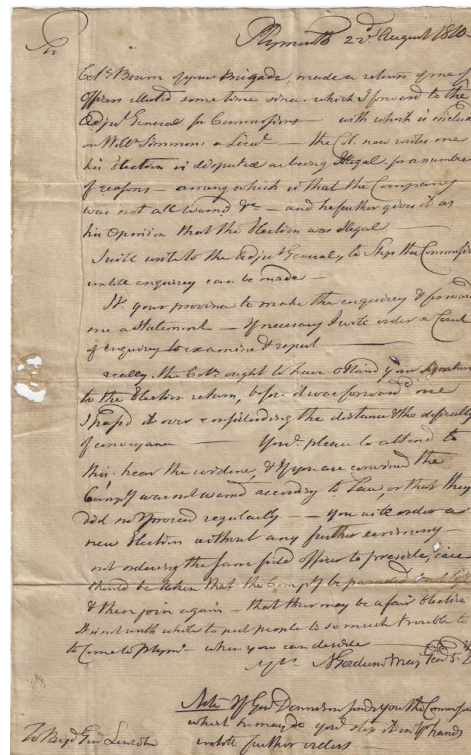 Sir
Plymouth 22d August 1810
Col. Bourn of your Brigade, made a return of one of
Officers elected some time since which I forward to the
Adjut General for Commissions with which is
on Willm Simmons a Lieut — the Col. now writes one
his Election is disputed as being Illegal for a number
of reasons — among which is that the Company
was not all warnd &c — and he further gives it as
his Opinion that the Election was illegal
I will write to the Adjut General, to stop the
untill enquirey can be made —
It your province to make the enquirey & forward
me a Statement — If necessary I will order a Court
of enquirey to examine & report
really, the Coll. ought to have obtaind your Signature
to the Election return, before it was forwd me
I pass'd it over considerding the distance & the
of conveyanc — You'l please to attend to
this. hear the evidine, & If you are convinced the
Compy was not warnd according to Law, or that they
did not proceed regularly — you will order a
new Election without any further ceremony —
not ordering the same field officer to preside, care
should be taken that the Compy be paraded
& then join again — that ther may be a fair Election
It is not worth while to put people to so much trouble to
to Come to Plymo when you can decide
N Goodwin Maj Gen 5
Note If Genl Donnison sends you the
which he may do you'l stop it in yr hands
untill further orders
To Brigd Genl Lincoln